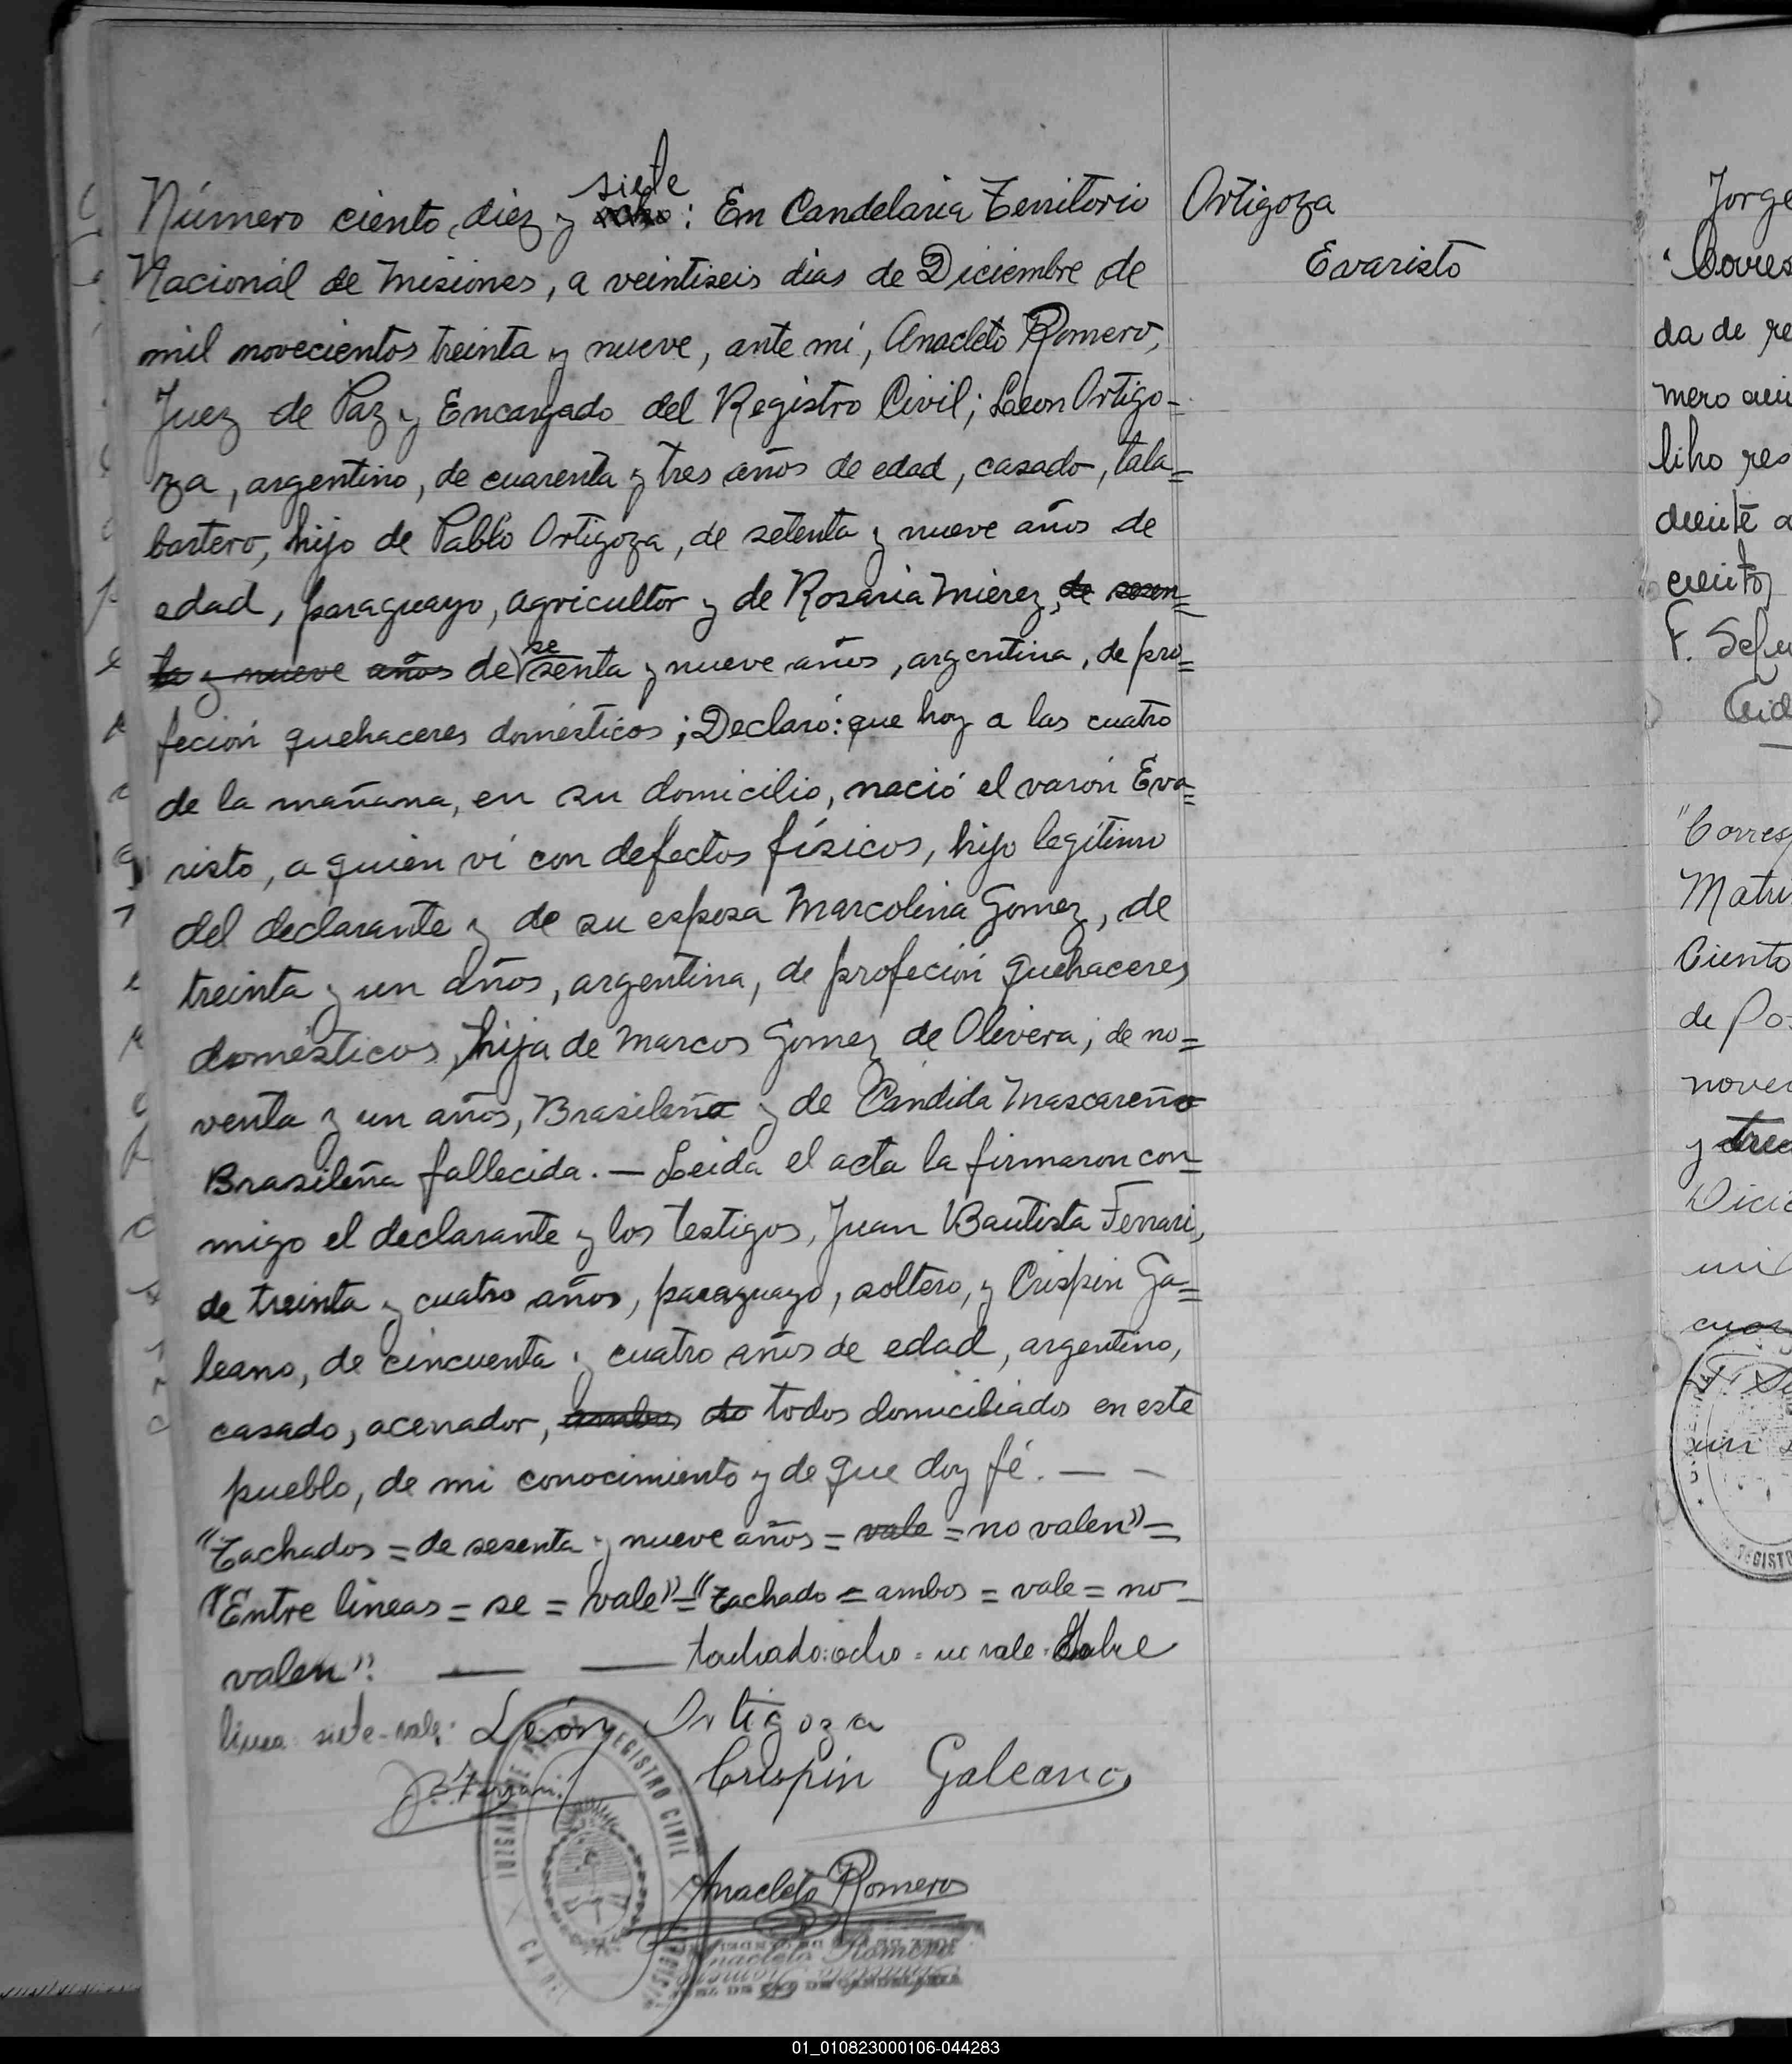 siete
Número ciento diez y ocho: En Candelaria Territorio
Nacional de Misiones, a veintiseis dias de Diciembre de
mil novecientos treinta y nueve, ante mi, Anacleto Romero,
Juez de Paz y Encargado del Registro Civil; Leon Ortigo-
za, argentino, de cuarenta y tres años de edad, casado, tala=
bartero, hijo de Pablo Ortigoza, de setenta y nueve años de
edad, paraguayo, agricultor y de Rosaria Mierez, de sesen=
se
ta y nueve años de senta y nueve años, argentina, de pro=
feción quehaceres domésticos; Declaró: que hoy a las cuatro
de la mañana, en su domicilio, nació el varón Eva=
risto, a quien ví con defectos físicos, hijo legítimo
del declarante y de su esposa Marcolina Gomez, de
treinta y un años, argentina, de profeción quehaceres
domésticos, hija de Marcos Gomez de Olivera, de no=
venta y un años, Brasileño y de Cándida Mascareño
Brasileña fallecida. — Leida el acta la firmaron con=
migo el declarante y los testigos, Juan Bautista Ferrari,
de treinta y cuatro años, paraguayo, soltero, y Crispin Ga=
leano, de cincuenta y cuatro años de edad, argentino,
casado, acerrador, ambos do todos domiciliados en este
pueblo, de mi conocimiento y de que doy fé. — —
"Tachados = de sesenta y nueve años = vale = no valen" =
"Entre lineas = se = vale" = "Tachado = ambos = vale = no=
valen". — — tachado: ocho = no vale. Sobre
linea siete-vale:
León Ortigoza
Ferrari
Crispin Galeano
Anacleto Romero
REGISTRO CIVIL
Anacleto Romero
JUEZ DE PAZ DE CANDELARIA
Ortigoza
Evaristo
Jorge
da de re
mero
de Po
REGISTRO
01_010823000106-044283